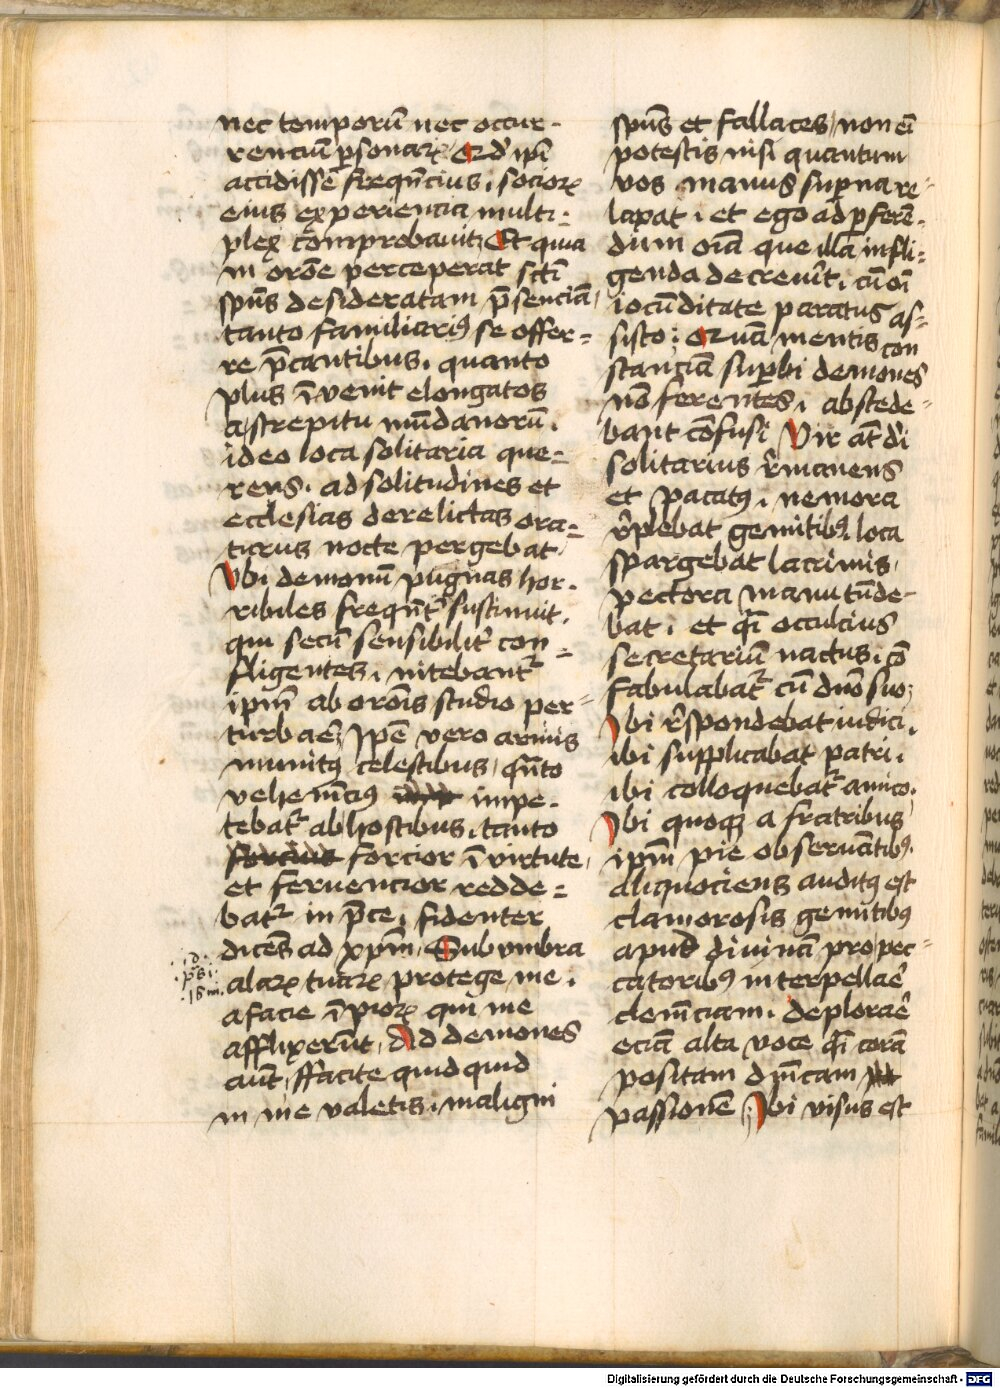 nec temporū nec occur-
renciū p̱sonaꝝ Qd ip̄i
accidisse freqn̄cius, socioꝝ
eius experiencia multi-
plex comprobauit; Et quia
in orōe perceperat sct̄i
sp̄us desideratam p̄senciā,
tanto familiariꝰ se offer-
re p̄cantibus, quanto
plus īvenit elongatos
a strepitu mūdanorū.
ideo loca solitaria que-
rens, ad solitudines et
ecclesias derelictas ora-
turus nocte pergebat
Vbi demonū pugnas hor-
ribiles freqn̄t᷑ sustinuit,
qui secū sensibilit᷑ con-
fligentes, nitebant᷑
ip̄m ab orōnis studio per-
turbare; Ip̄e vero armis
munitꝰ celestibus, qn̄to
vehemēciꝰ impe-
tebat᷑ ab hostibus, tanto
forcius forcior ī virtute,
et feruencior redde-
bat᷑ in p̄ce, fidenter
dicēs ad xp̄m, Sub vmbra
alaꝝ tuaꝝ protege me,
a facie īpioꝝ qui me
afflixerūt, Ad demones
aūt, ffacite quidquid
in me valetis, maligni
.id.
.ps̄.
.18m.
sp̄us et fallaces, non eī
potestis nisi quantum
vos manus sup̱na re-
laxat, et ego ad p̱ferē-
dum oīa que illa infli-
genda decreuīt, cū oī
iocūditate paratus as-
sisto; Qui mentis con
stanciā sup̱bi demones
nō ferentes, abscede-
bant cōfusi Vir āt di
solitarius r̄manens
et pacatꝰ, nemora
r̄plebat gemitibꝰ, loca
spargebat lacrimis,
pectora manu tūde-
bat, et qi̅ occulcius
secretariū nactus, cō
fabulabat᷑ cū dn̄o suo;
Ibi r̄spondebat iudici,
ibi supplicabat patri,
ibi colloquebat᷑ amico.
Ibi quoqꝫ a fratribus
ip̄m pie obseruātibꝰ.
aliquociens auditꝰ est
clamorosis gemitibꝰ
apud diuinā pro pec-
catoribꝰ interpellare
clemēciam, deplorare
eciā alta voce qi̅ corā
positam dn̄icam
passionē; Ibi visus est
Digitalisierung gefördert durch die Deutsche Forschungsgemeinschaft - DFG